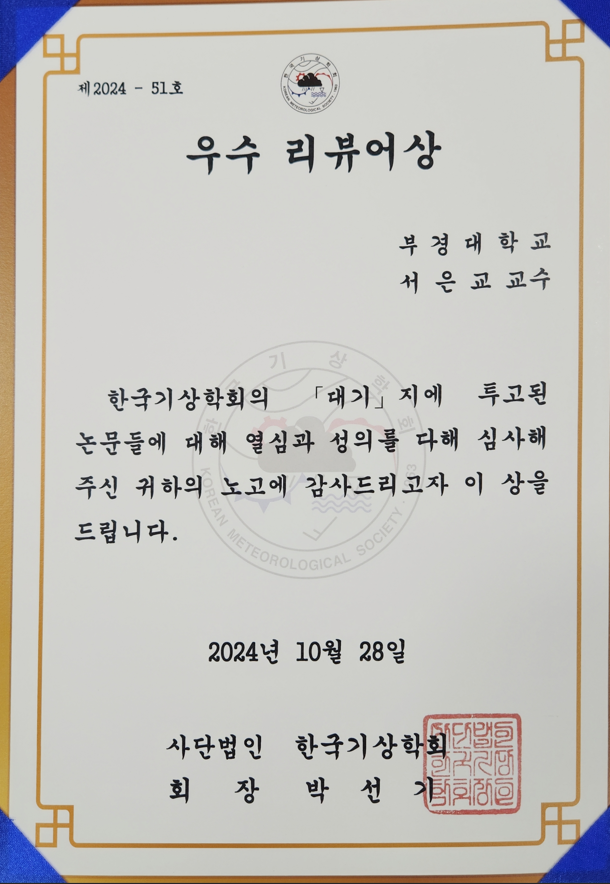 제2024 - 51호
우수 리뷰어상
부경대학교
서은교 교수
한국기상학회의 「대기」지에 투고된
논문들에 대해 열심과 성의를 다해 심사해
주신 귀하의 노고에 감사드리고자 이 상을
드립니다.
한국기상학회
KOREAN METEOROLOGICAL SOCIETY
2024년 10월 28일
사단법인 한국기상학회
회 장 박 선 기